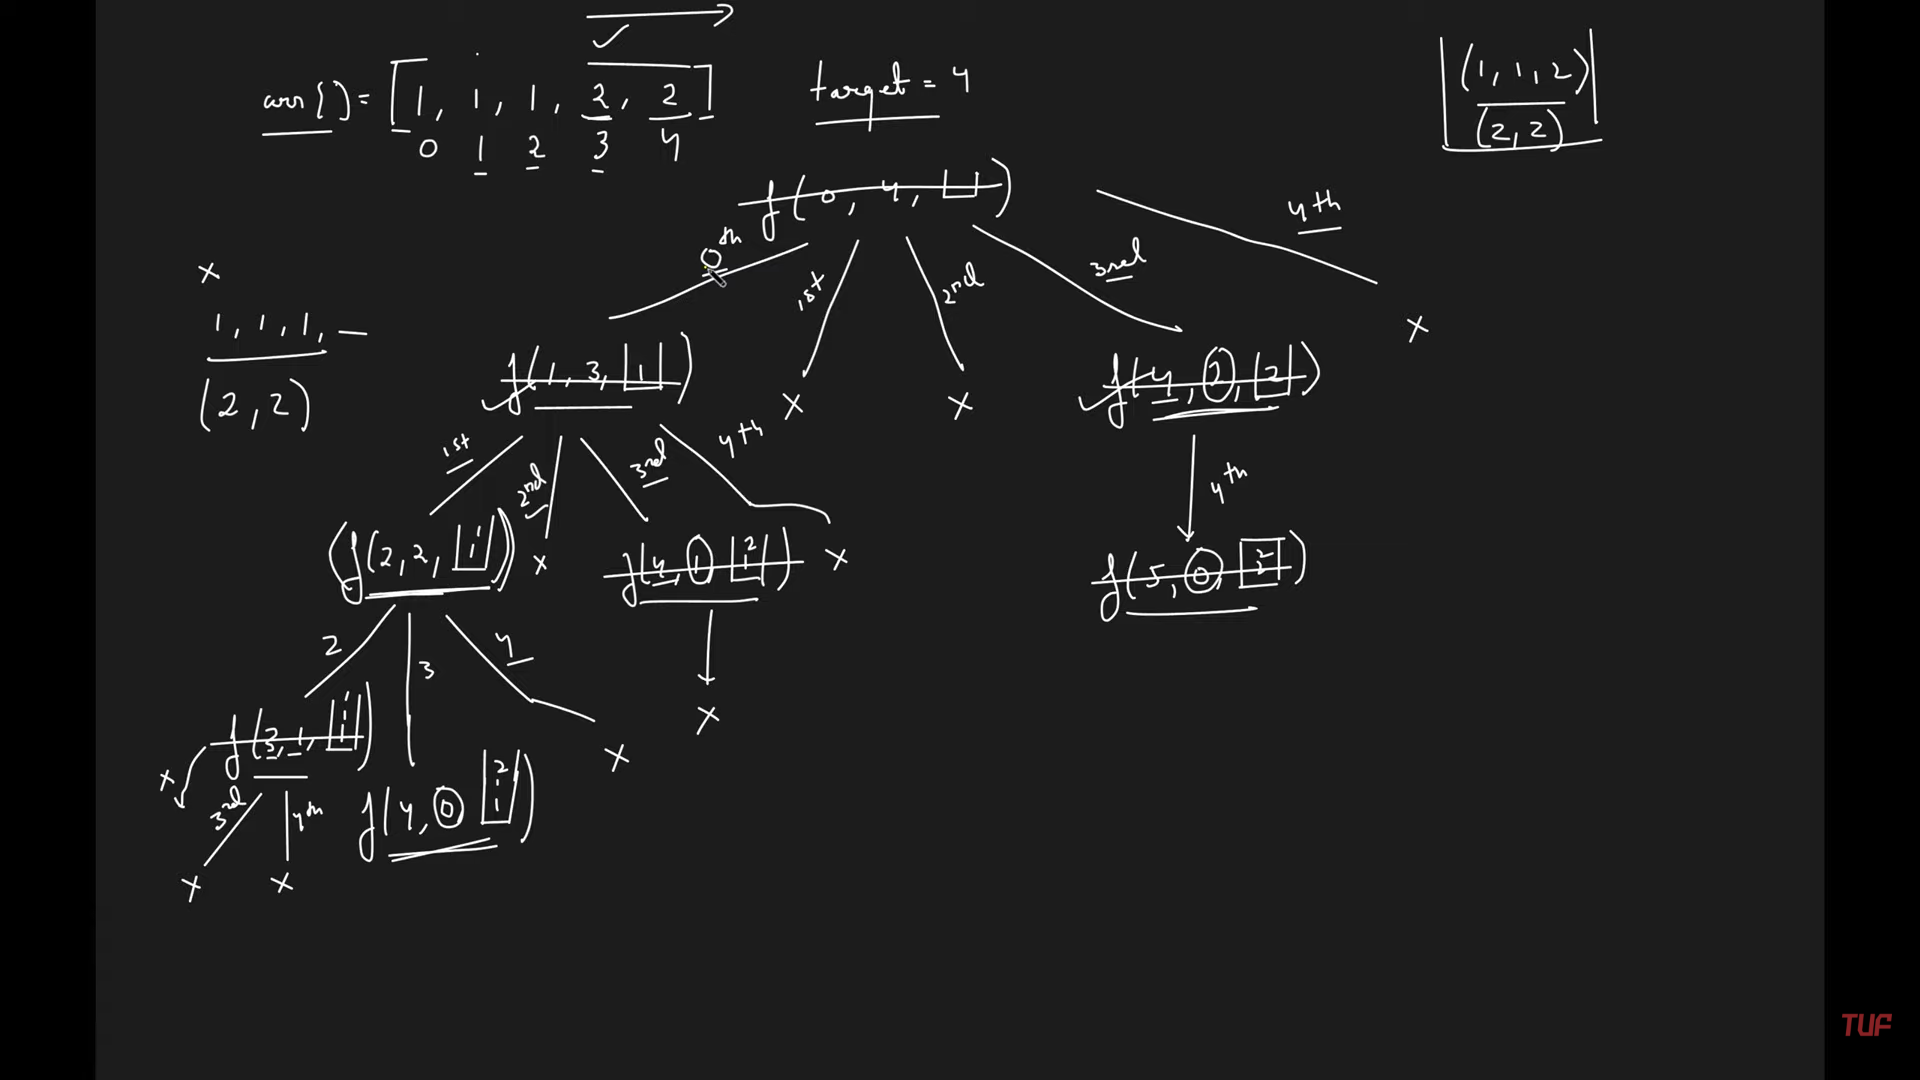 arr[] = [1, 1, 1, 2, 2]
0 1 2 3 4
target = 4
(1, 1, 2)
(2, 2)
f(0, 4, )
0th
1st
2nd
3rd
4th
x
1, 1, 1, —
(2, 2)
f(1, 3, 1)
x
x
f(4, 2, 2)
x
1st
2nd
3rd
4th
4th
f(2, 2, 1 1)
x
f(4, 1, 2 1)
x
f(5, 0, 2 2)
2
3
4
x
x
f(3, 1, 1 1 1)
x
3rd
4th
f(4, 0, 2 1 1)
x
x
TUF